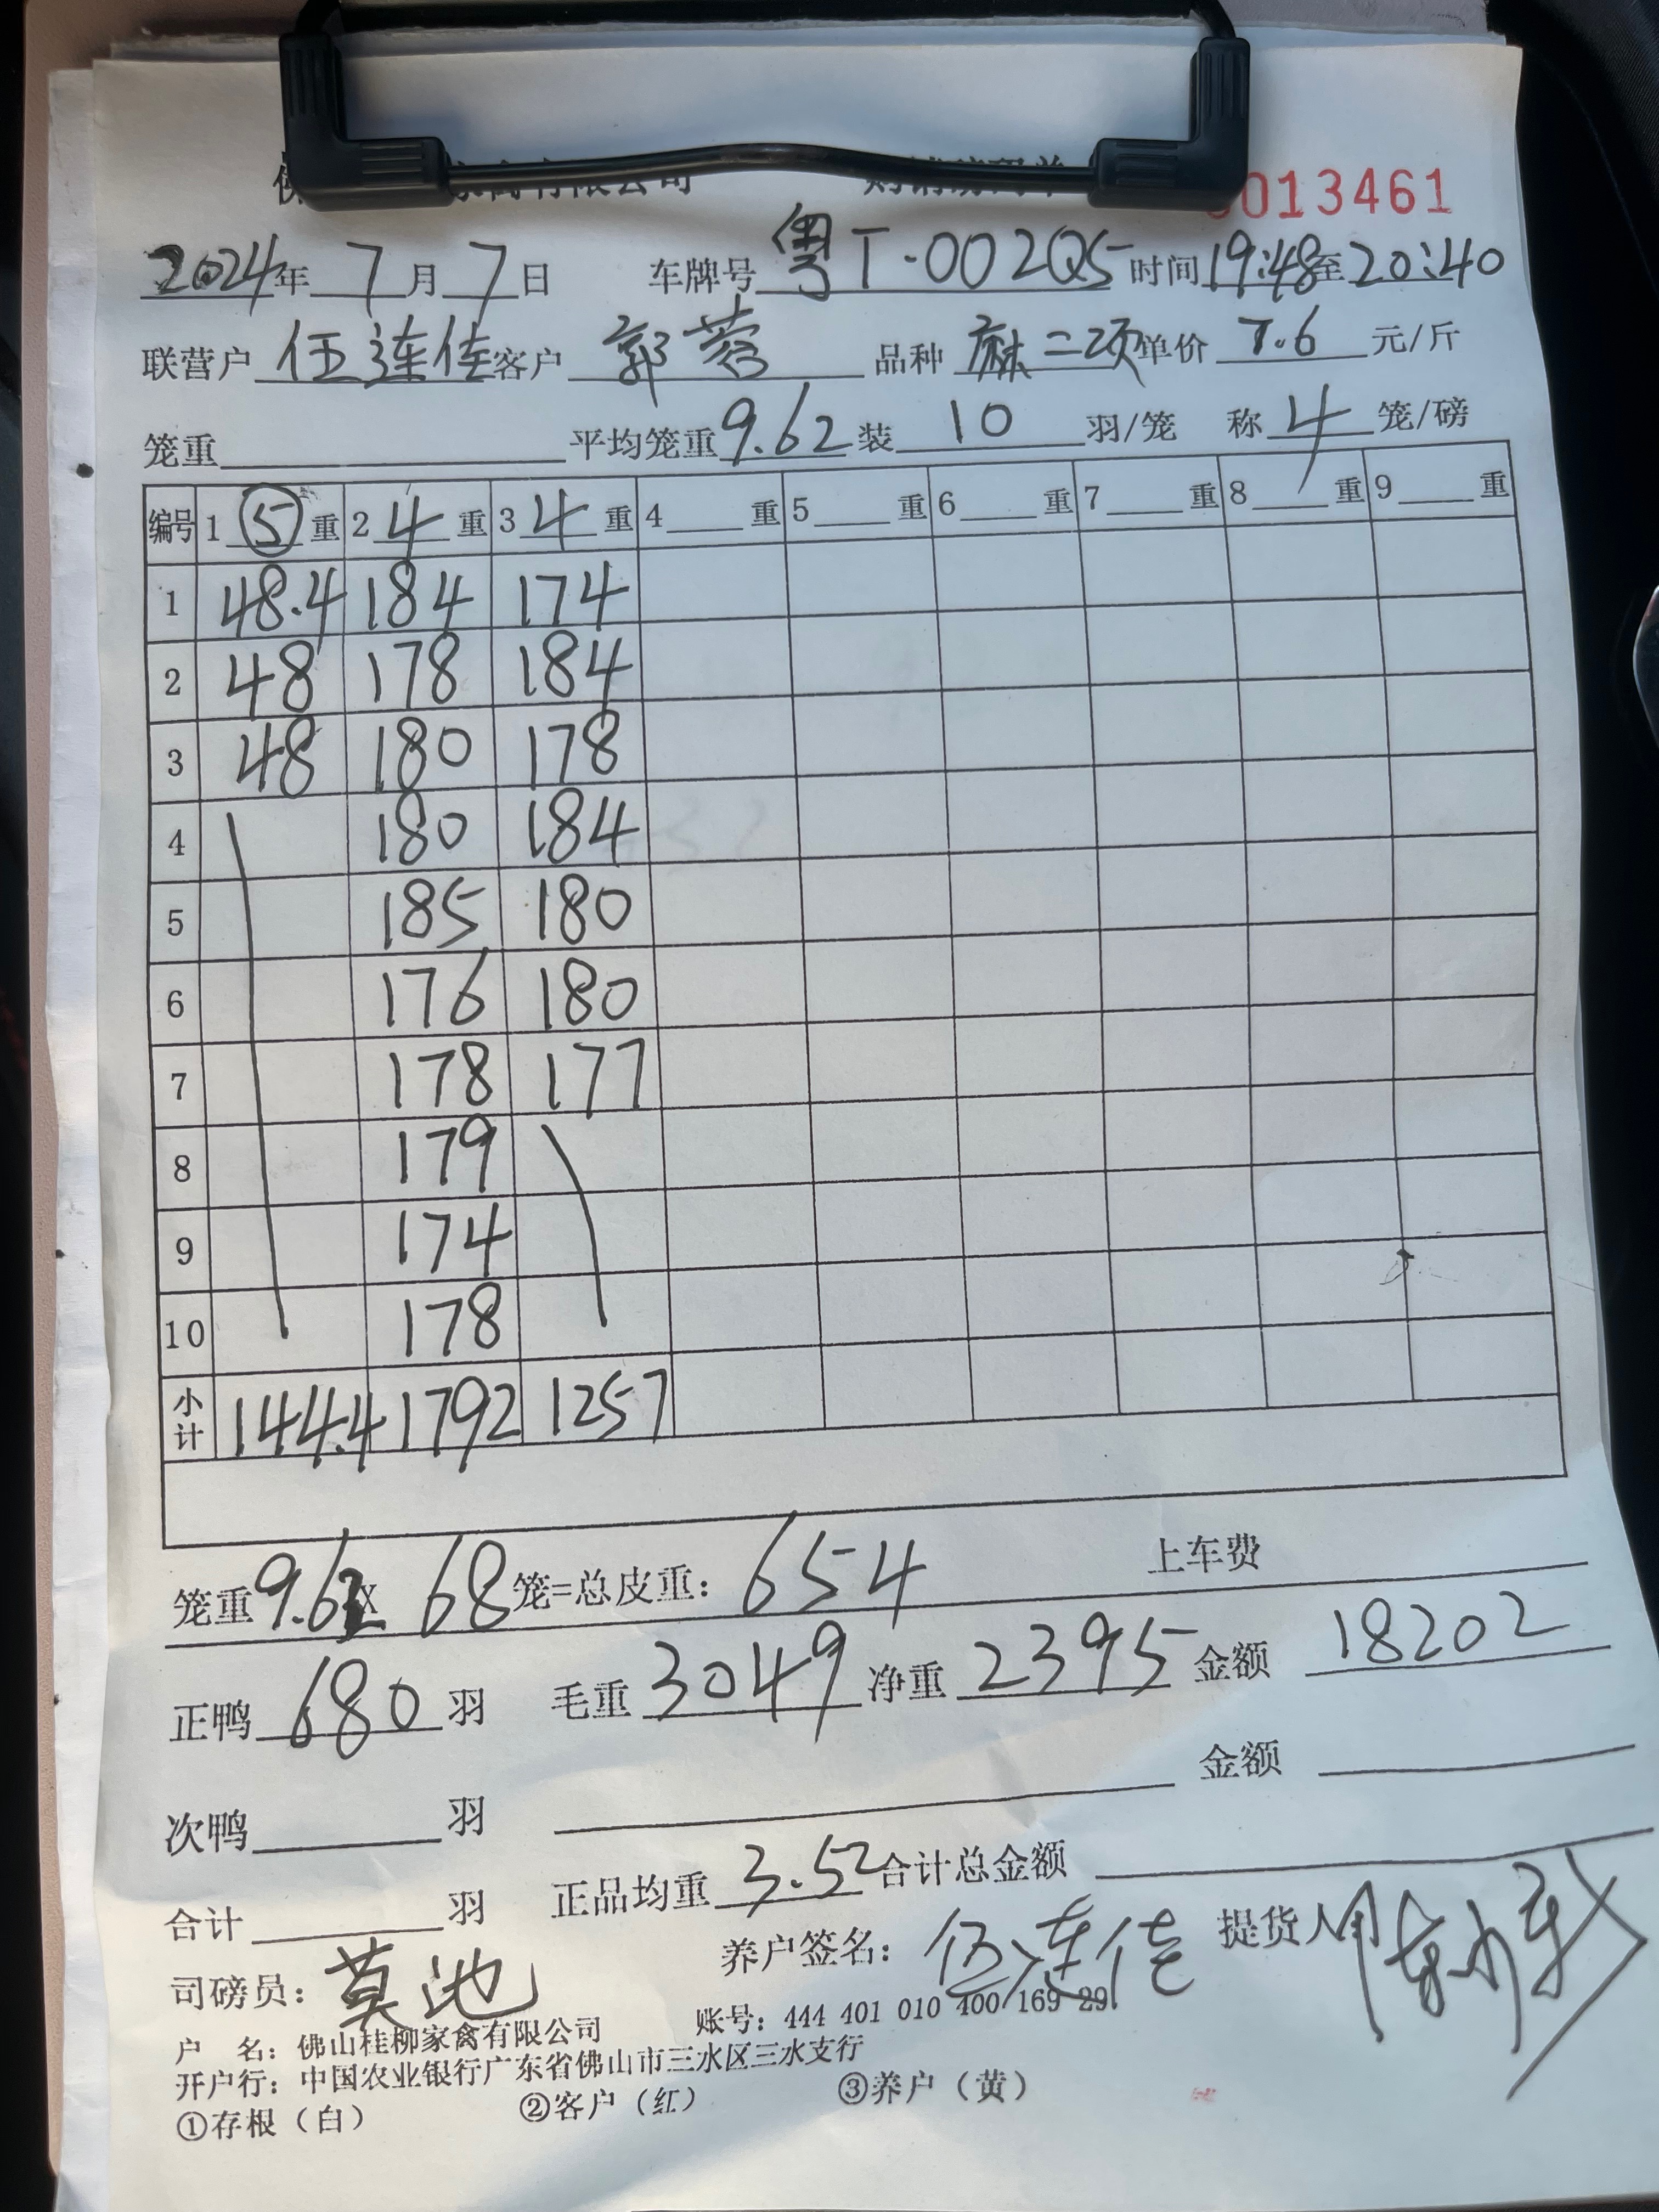 家禽有限公司 购销磅码单 0013461
2024年7月7日 车牌号粤T·002Q5 时间19:48至20:40
联营户 伍连佳 客户 郭蓉 品种 麻二项 单价 7.6 元/斤
笼重 平均笼重9.62 装 10 羽/笼 称 4 笼/磅
编号 1 ⑤ 重 2 4 重 3 4 重 4 重 5 重 6 重 7 重 8 重 9 重
1 48.4 184 174
2 48 178 184
3 48 180 178
4 180 184
5 185 180
6 176 180
7 178 177
8 179
9 174
10 178
小计 144.4 1792 1257
笼重9.62X 68笼=总皮重：654 上车费
正鸭 680 羽 毛重 3049 净重 2395 金额 18202
次鸭 羽 金额
合计 羽 正品均重 3.52 合计总金额
司磅员：莫池 养户签名：伍连佳 提货人
户 名：佛山桂柳家禽有限公司 账号：444 401 010 400 169 29
开户行：中国农业银行广东省佛山市三水区三水支行
①存根（白） ②客户（红） ③养户（黄）